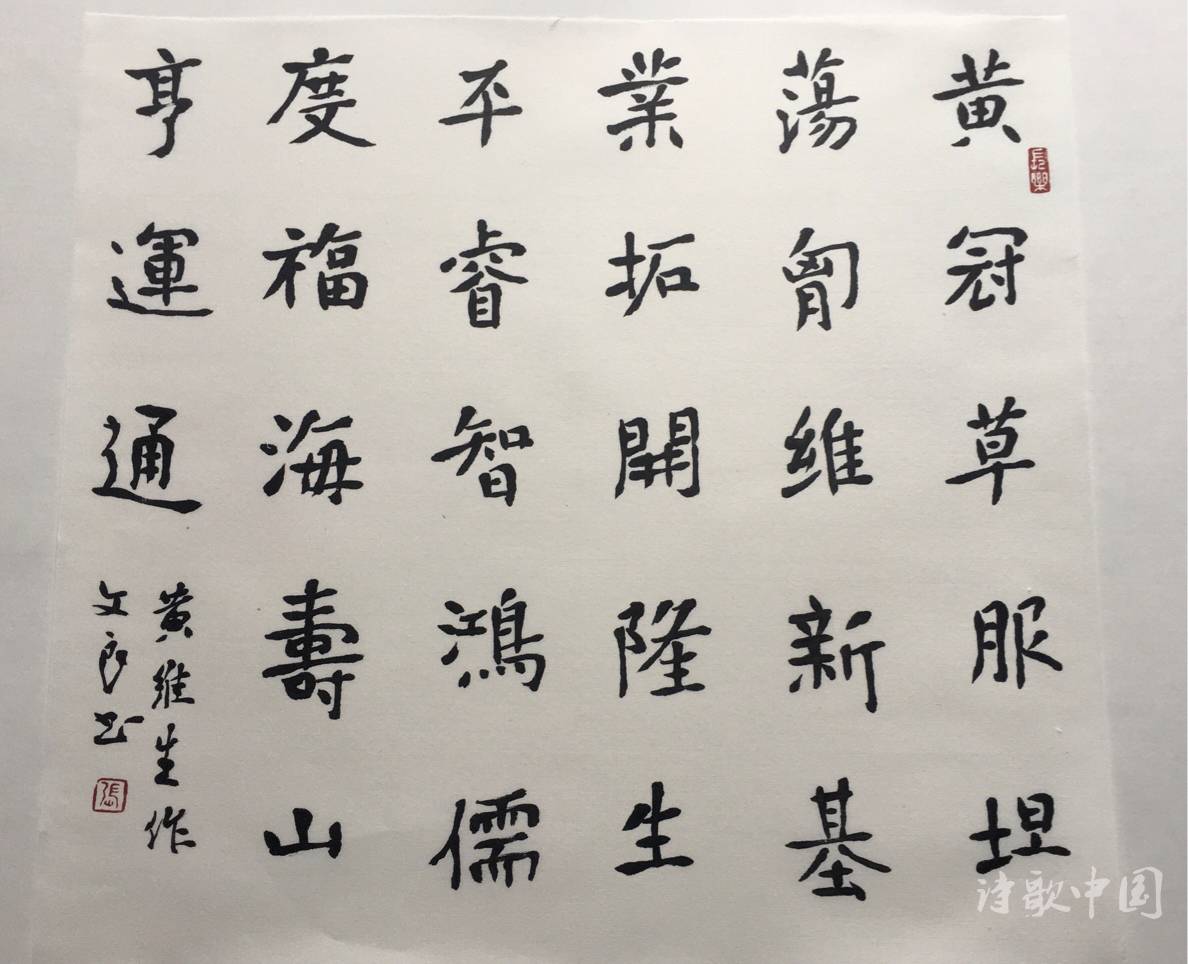 黄冠草服坦
蕩胷維新基
業拓開隆生
平睿智鴻儒
度福海壽山
亨運通
黄維生作
文良书
長樂
張
诗歌中国